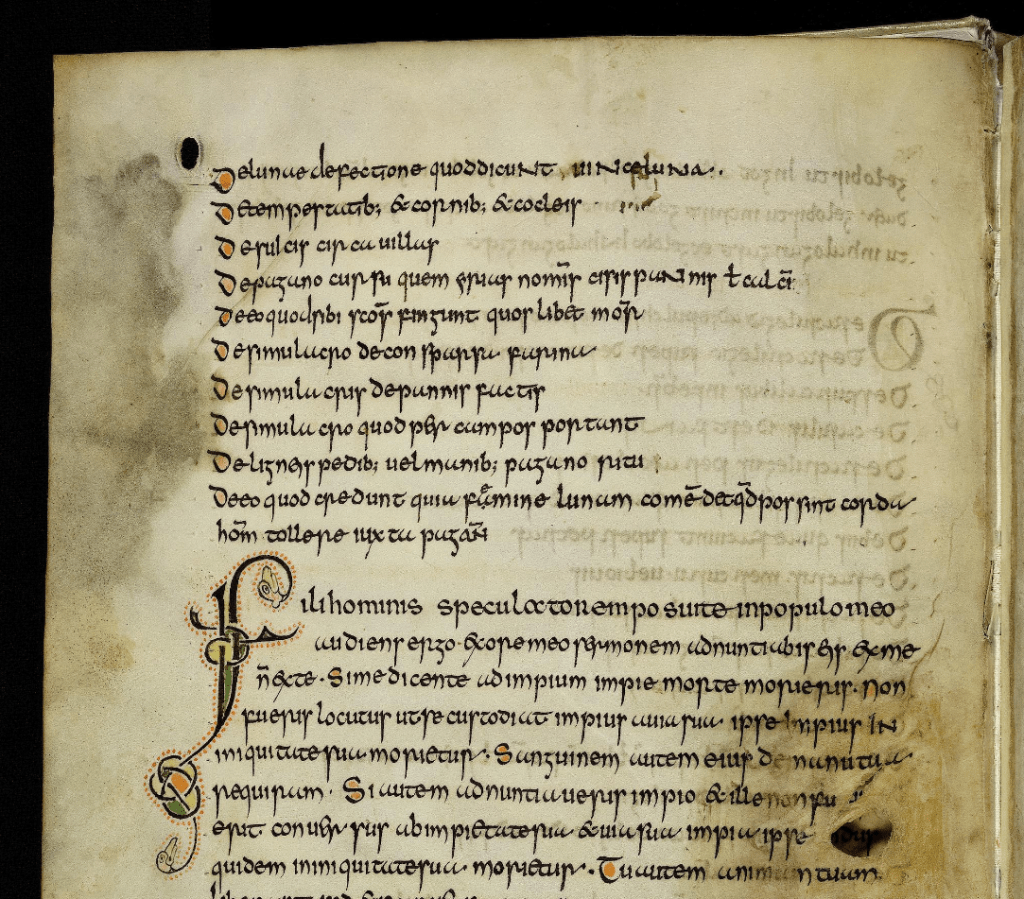 De lunae defectione quod dicunt uinceluna.
De tempestatib; & cornib; & cocleis
De sulcis circa uillas
De pagano cursu quem yrias nomin̄s cisis pannis ł calcm̄
De eo quod sibi scōs fingunt quos libet mor̄
De simulacro de consparsa farina
De simulacris de pannis factis
De simulacro quod per campos portant
De ligneis pedib; uel manib; pagano ritu
De eo quod credunt quia femine lunam comēdet qđ possint corda
hom̄ tollere iuxta pagan̄
Fili hominis speculatorem posui te in populo meo
audiens ergo ex ore meo sermonem adnuntiabis eis ex me
n̄ ex te. Si me dicente ad impium impie morte morieris. Non
fueris locutus ut se custodiat impius a uia sua ipse impius in
iniquitate sua morietur. Sanguinem autem eius de manu tua
requiram. Si autem adnuntiaueris impio & ille non fu
erit conuersus ab impietate sua & uia sua impia ipse
quidem in iniquitate sua morietur. Tu autem animam tuam